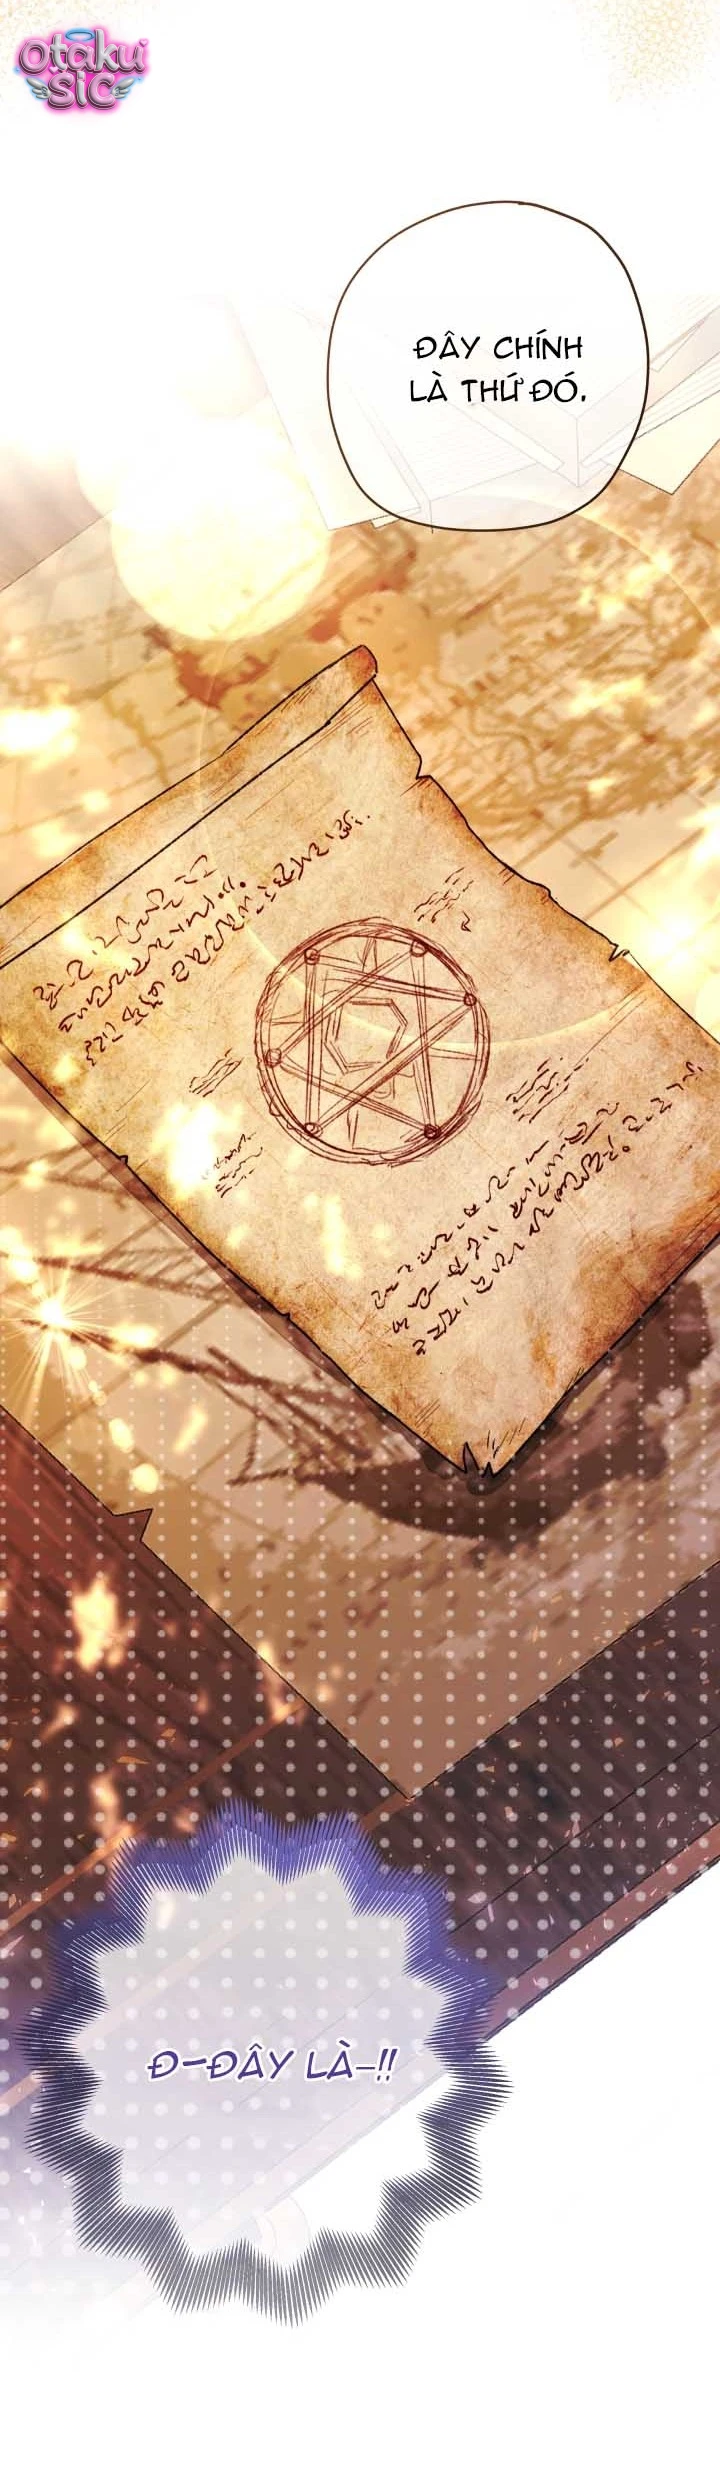 Otaku
SIC
ĐÂY CHÍNH
LÀ THỨ ĐÓ.
Đ-ĐÂY LÀ-!!